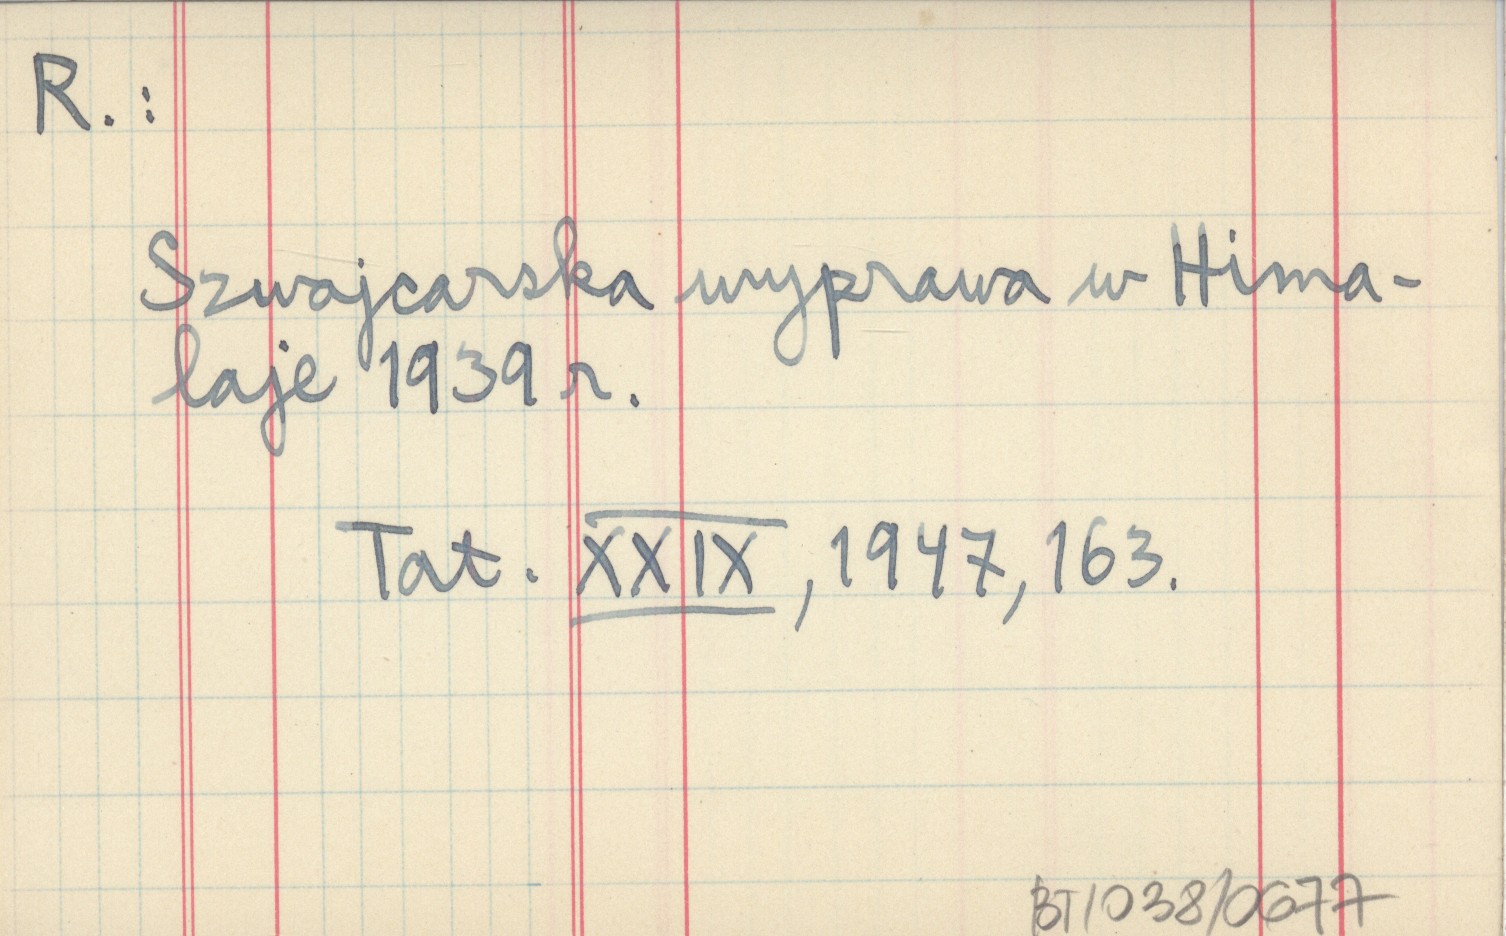 R.:
Szwajcarska wyprawa w Hima-
laje 1939 r.
Tat. XXIX, 1947, 163.
BT/038/0677